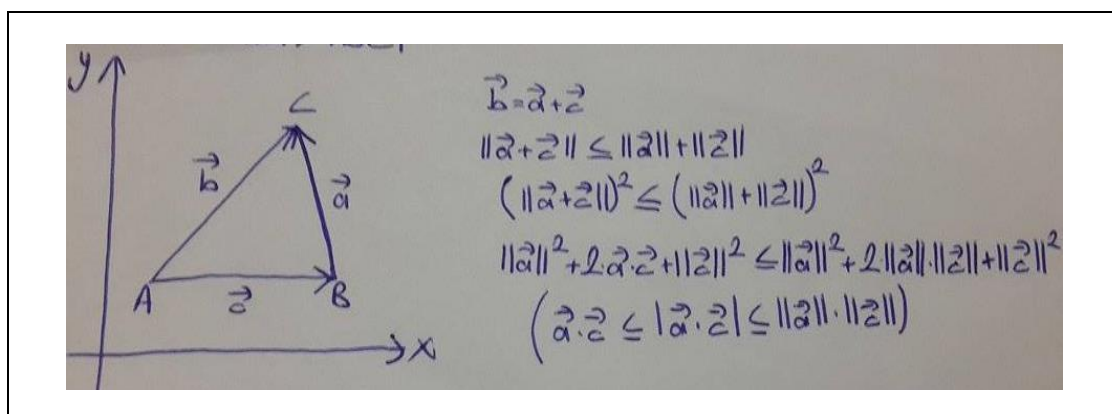 y
C
b⃗
a⃗
A
c⃗
B
x
b⃗=a⃗+c⃗
||a⃗+c⃗|| ≤ ||a⃗||+||c⃗||
(||a⃗+c⃗||)² ≤ (||a⃗||+||c⃗||)²
||a⃗||²+2·a⃗·c⃗+||c⃗||² ≤ ||a⃗||²+2||a⃗||·||c⃗||+||c⃗||²
(a⃗·c⃗ ≤ |a⃗·c⃗| ≤ ||a⃗||·||c⃗||)